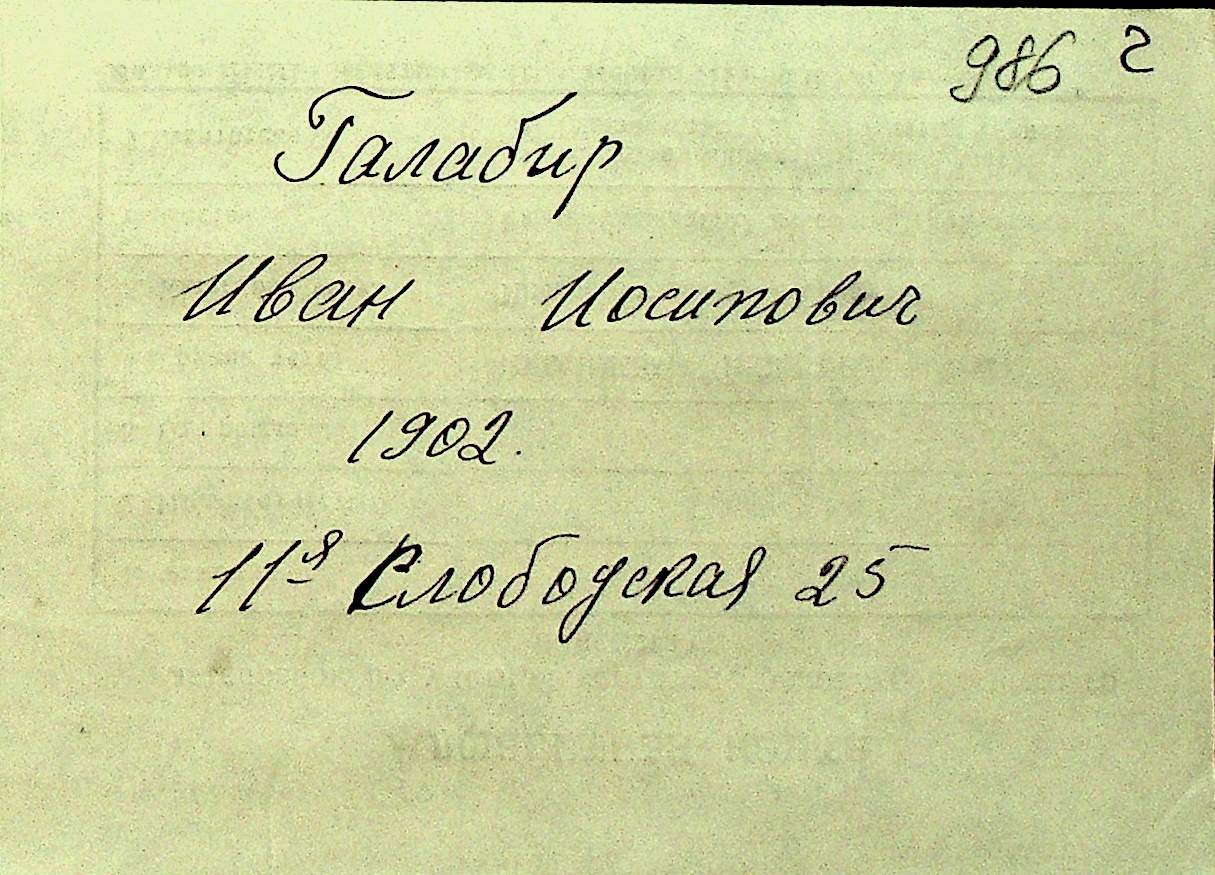 986 г
Галабир
Иван Иосипович
1902.
11я Слободская 25